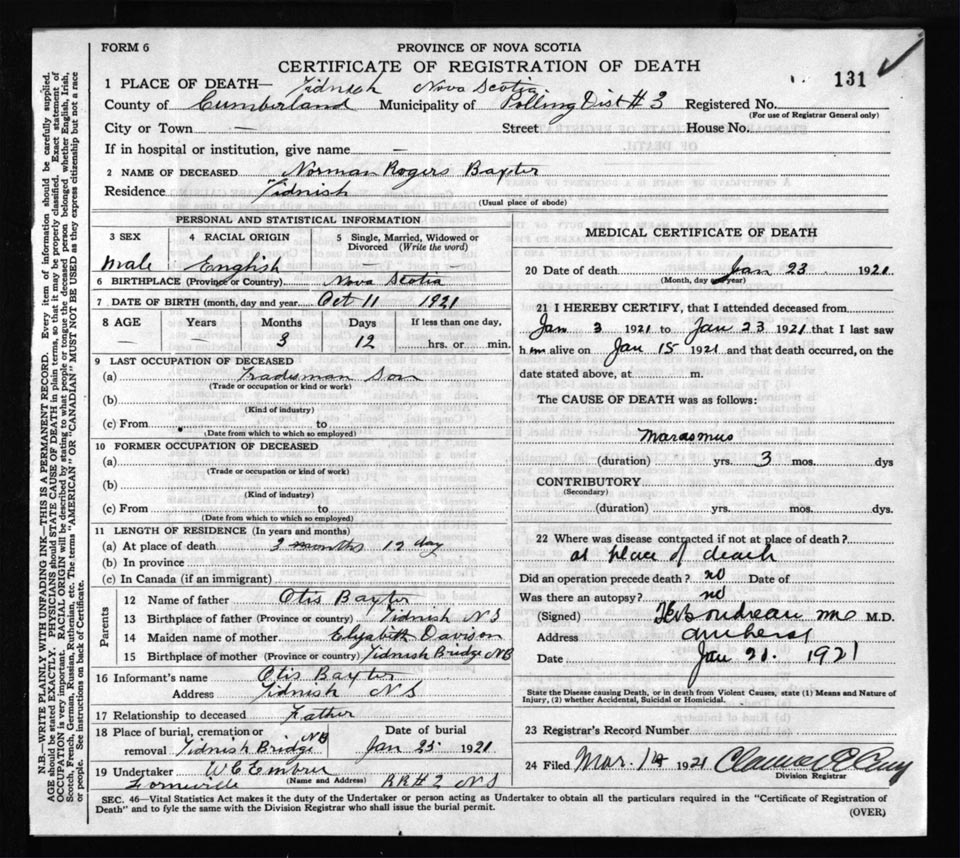 FORM 6
PROVINCE OF NOVA SCOTIA
CERTIFICATE OF REGISTRATION OF DEATH
131
1 PLACE OF DEATH— Tidnish Nova Scotia
County of Cumberland Municipality of Polling Dist # 3 Registered No.
(For use of Registrar General only)
City or Town — Street House No.
If in hospital or institution, give name —
2 NAME OF DECEASED Norman Rogers Baxter
Residence Tidnish
(Usual place of abode)
PERSONAL AND STATISTICAL INFORMATION
3 SEX 4 RACIAL ORIGIN 5 Single, Married, Widowed or Divorced (Write the word)
Male English — —
6 BIRTHPLACE (Province or Country) Nova Scotia
7 DATE OF BIRTH (month, day and year) Oct 11 1921
8 AGE Years Months Days If less than one day,
— — 3 12 hrs. or min.
9 LAST OCCUPATION OF DECEASED
(a) Tradisman Son
(Trade or occupation or kind of work)
(b)
(Kind of industry)
(c) From to
(Date from which to which so employed)
10 FORMER OCCUPATION OF DECEASED
(a)
(Trade or occupation or kind of work)
(b)
(Kind of industry)
(c) From to
(Date from which to which so employed)
11 LENGTH OF RESIDENCE (In years and months)
(a) At place of death 3 months 12 day
(b) In province
(c) In Canada (if an immigrant)
Parents
12 Name of father Otis Baxter
13 Birthplace of father (Province or country) Tidnish N S
14 Maiden name of mother Elizabeth Davison
15 Birthplace of mother (Province or country) Tidnish Bridge NB
16 Informant's name Otis Baxter
Address Tidnish N S
17 Relationship to deceased Father
18 Place of burial, cremation or Date of burial
removal Tidnish Bridge NB Jan 25 1921
19 Undertaker W C Embree
(Name and Address)
RR # 2 N S
MEDICAL CERTIFICATE OF DEATH
20 Date of death Jan 23 1921
(Month, day and year)
21 I HEREBY CERTIFY, that I attended deceased from
Jan 3 1921 to Jan 23 1921 that I last saw
him alive on Jan 15 1921 and that death occurred, on the
date stated above, at m.
The CAUSE OF DEATH was as follows:
Marasmus
(duration) yrs. 3 mos. dys
CONTRIBUTORY
(Secondary)
(duration) yrs. mos. dys.
22 Where was disease contracted if not at place of death?
at place of death
Did an operation precede death? no Date of
Was there an autopsy? no
(Signed) M.D.
Address Amherst
Date Jan 21. 1921
State the Disease causing Death, or in death from Violent Causes, state (1) Means and Nature of
Injury, (2) whether Accidental, Suicidal or Homicidal.
23 Registrar's Record Number
24 Filed Mar. 14 1921
Division Registrar
SEC. 46—Vital Statistics Act makes it the duty of the Undertaker or person acting as Undertaker to obtain all the particulars required in the "Certificate of Registration of
Death" and to fyle the same with the Division Registrar who shall issue the burial permit.
(OVER)
N.B.—WRITE PLAINLY WITH UNFADING INK—THIS IS A PERMANENT RECORD. Every item of information should be carefully supplied.
AGE should be stated EXACTLY. PHYSICIANS should STATE CAUSE OF DEATH in plain terms, so that it may be properly classified. Exact statement of
OCCUPATION is very important. RACIAL ORIGIN will be described by stating to what people or tongue the deceased person belonged whether English, Irish,
Scotch, French, German, Russian, Ruthenian, etc. The terms "AMERICAN" OR "CANADIAN" MUST NOT BE USED as they express citizenship but not a race
or people. See instructions on back of Certificate.